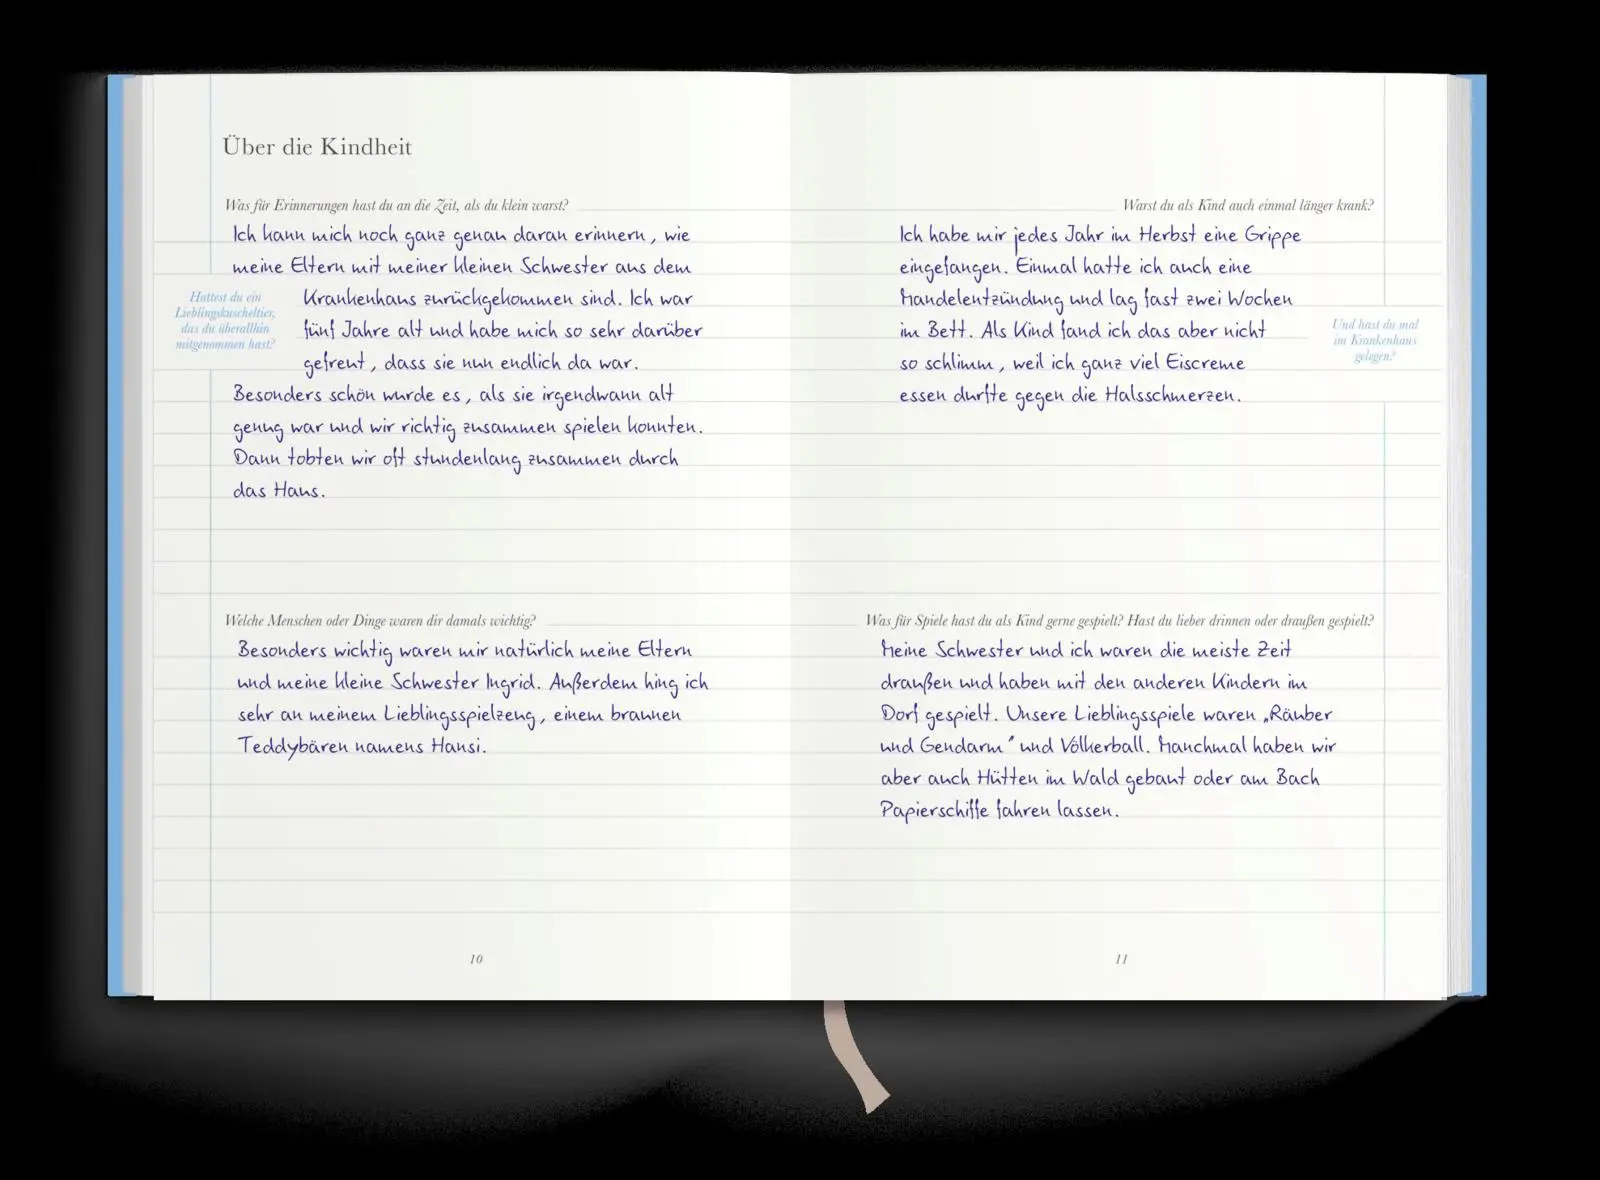 Über die Kindheit
Was für Erinnerungen hast du an die Zeit, als du klein warst?
Ich kann mich noch ganz genau daran erinnern, wie
meine Eltern mit meiner kleinen Schwester aus dem
Krankenhaus zurückgekommen sind. Ich war
fünf Jahre alt und habe mich so sehr darüber
gefreut, dass sie nun endlich da war.
Besonders schön wurde es, als sie irgendwann alt
genug war und wir richtig zusammen spielen konnten.
Dann tobten wir oft stundenlang zusammen durch
das Haus.
Hattest du ein
Lieblingskuscheltier,
das du überallhin
mitgenommen hast?
Welche Menschen oder Dinge waren dir damals wichtig?
Besonders wichtig waren mir natürlich meine Eltern
und meine kleine Schwester Ingrid. Außerdem hing ich
sehr an meinem Lieblingsspielzeug, einem braunen
Teddybären namens Hansi.
10
Warst du als Kind auch einmal länger krank?
Ich habe mir jedes Jahr im Herbst eine Grippe
eingefangen. Einmal hatte ich auch eine
Mandelentzündung und lag fast zwei Wochen
im Bett. Als Kind fand ich das aber nicht
so schlimm, weil ich ganz viel Eiscreme
essen durfte gegen die Halsschmerzen.
Und hast du mal
im Krankenhaus
gelegen?
Was für Spiele hast du als Kind gerne gespielt? Hast du lieber drinnen oder draußen gespielt?
Meine Schwester und ich waren die meiste Zeit
draußen und haben mit den anderen Kindern im
Dorf gespielt. Unsere Lieblingsspiele waren „Räuber
und Gendarm" und Völkerball. Manchmal haben wir
aber auch Hütten im Wald gebaut oder am Bach
Papierschiffe fahren lassen.
11